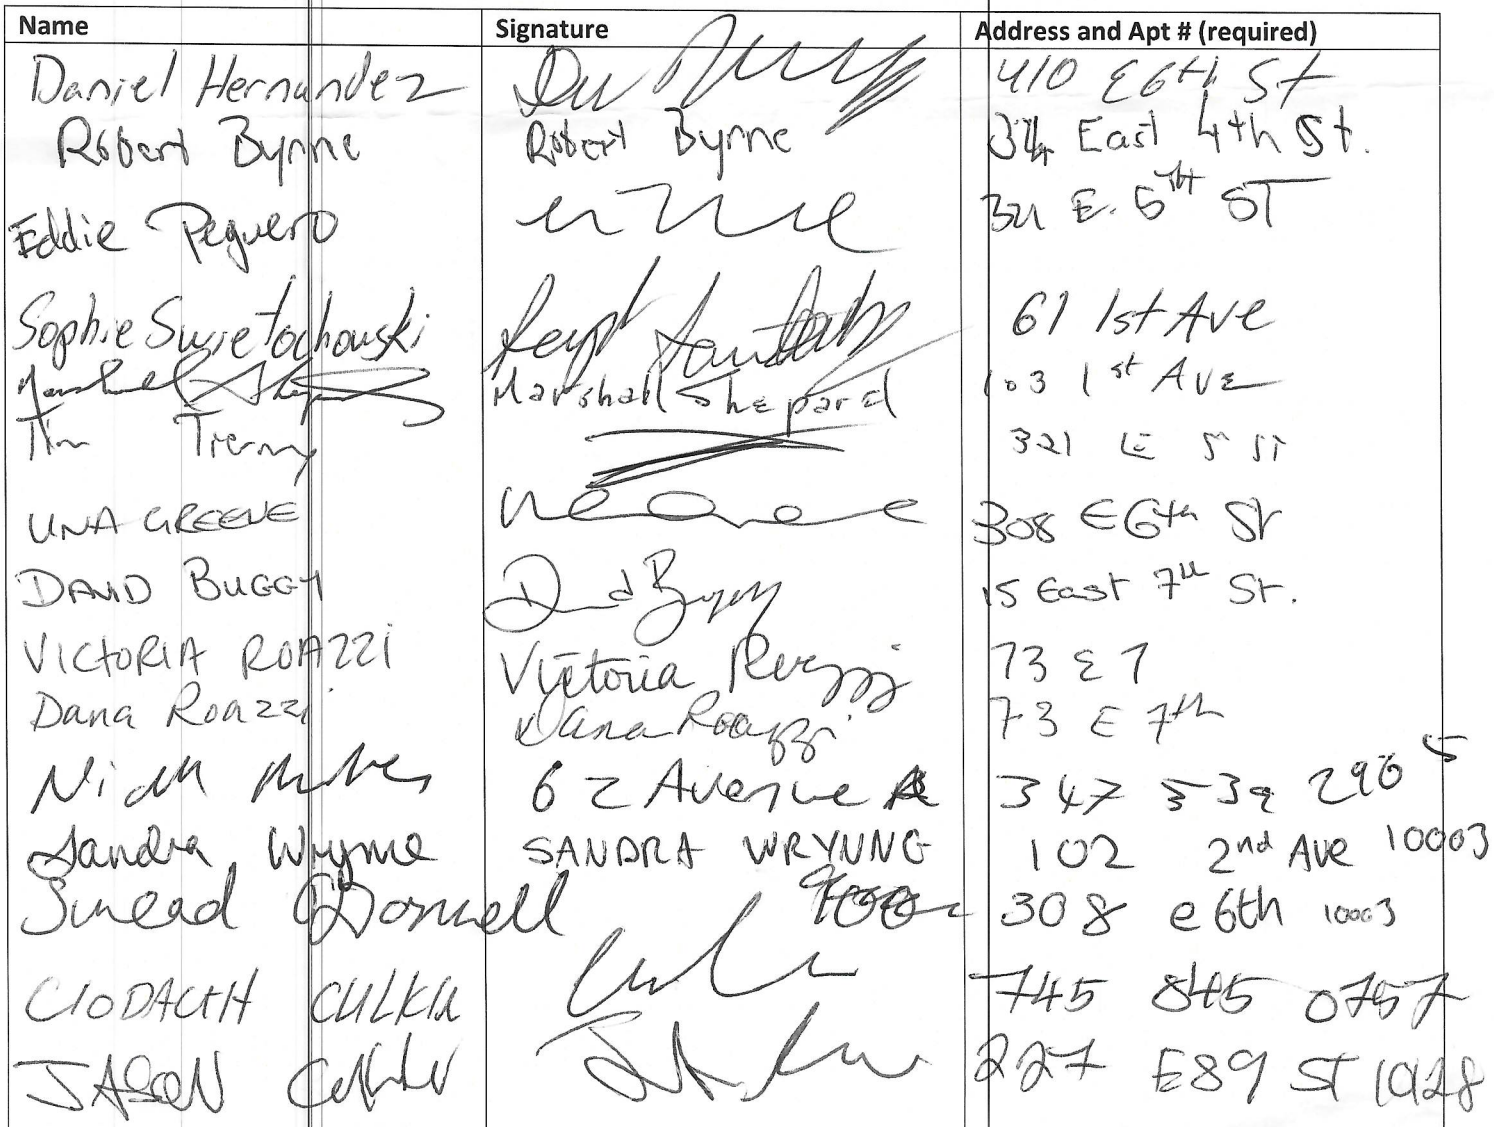 Name Signature Address and Apt # (required)
Daniel Hernandez 410 E 6th St
Robert Byrne Robert Byrne 34 East 4th St.
Eddie Peguero 321 E. 5th ST
Sophie Swietochowski 61 1st Ave
Marshall Shepard 103 1st Ave
Tim Tierny 321 E 5 ST
UNA GREENE 308 E 6th St
DAVID BUGGY David Buggy 15 East 7th St.
VICTORIA ROAZZI Victoria Roazzi 73 E 7
Dana Roazzi Dana Roazzi 73 E 7th
62 Avenue A 347 539 2905
Sandra Wrynne SANDRA WRYNNE 102 2nd Ave 10003
Sinead O'Donnell 308 e 6th 10003
CLODAGH CULKIN 745 845 0757
JASON 227 E 89 ST 10128